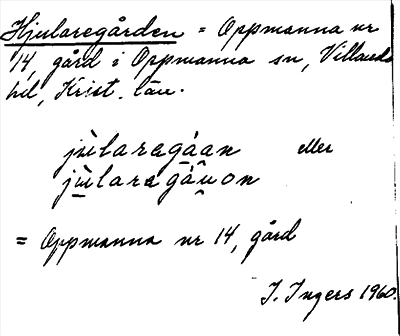 Hjularegården = Oppmanna nr
14, gård i Oppmanna sn, Villands
hd, Krist. län.
jùlaragáan eller
jùlaragáuon
= Oppmanna nr 14, gård
I. Ingers 1960.